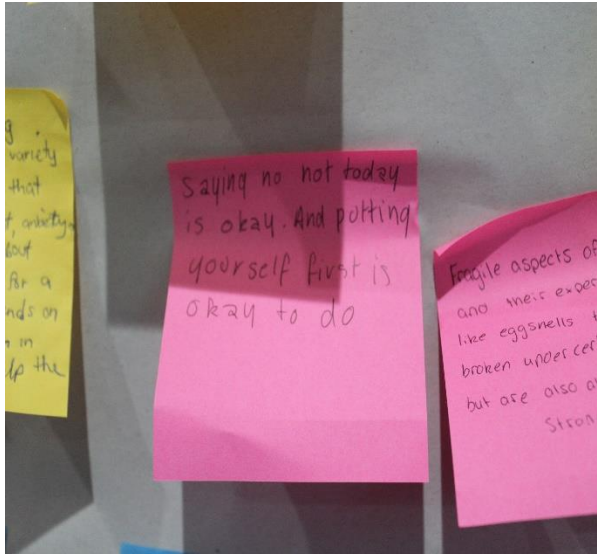 g.
variety
that
t, anxiety,
bout
for a
nds on
in
lp the
Saying no not today
is okay. And putting
yourself first is
okay to do
Fragile aspects of
and their exper
like eggshells t
broken under cer
but are also a
Stron